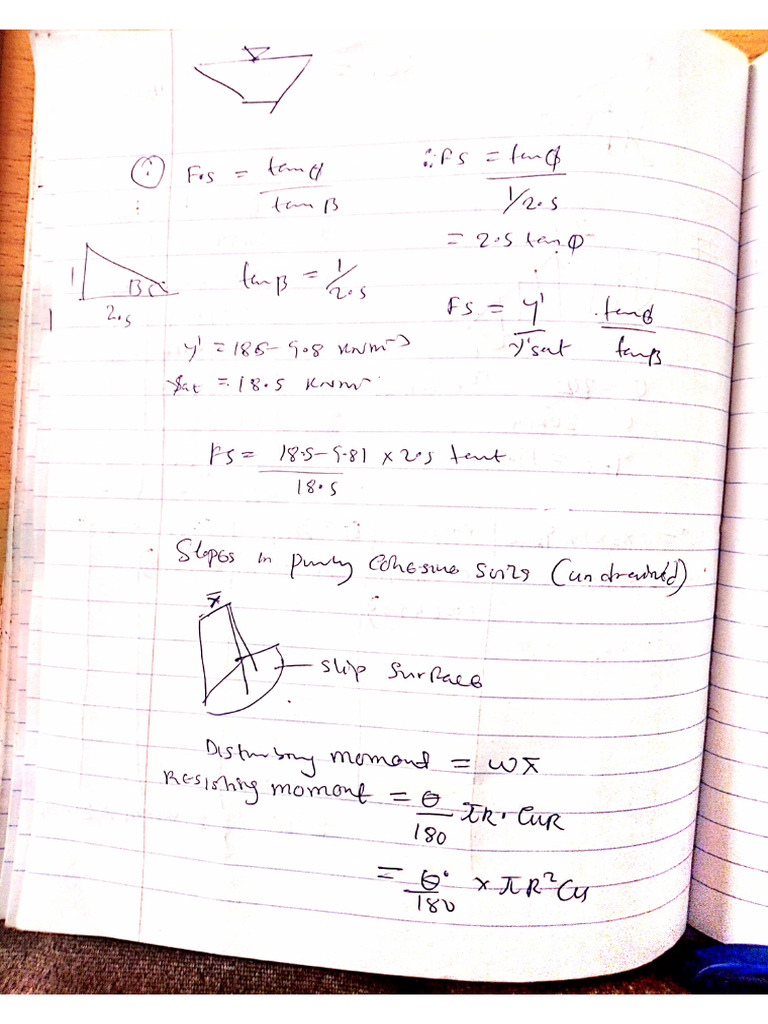 i
F.S = tanφ / tan β
∴ FS = tanφ / 1/2.5
= 2.5 tan φ
1
β
2.5
tanβ = 1/2.5
FS = γ' / γ'sat . tanφ / tanβ
γ' = 18.5 - 9.8 KN/m³
γsat = 18.5 KN/m³
FS = 18.5 - 9.81 / 18.5 x 2.5 tan
Slopes in purely Cohesive Soils (undrained)
x̄
slip surface
Disturbing moment = Wx̄
Resisting moment = θ/180 πR. CuR
= θ°/180 x πR² Cu